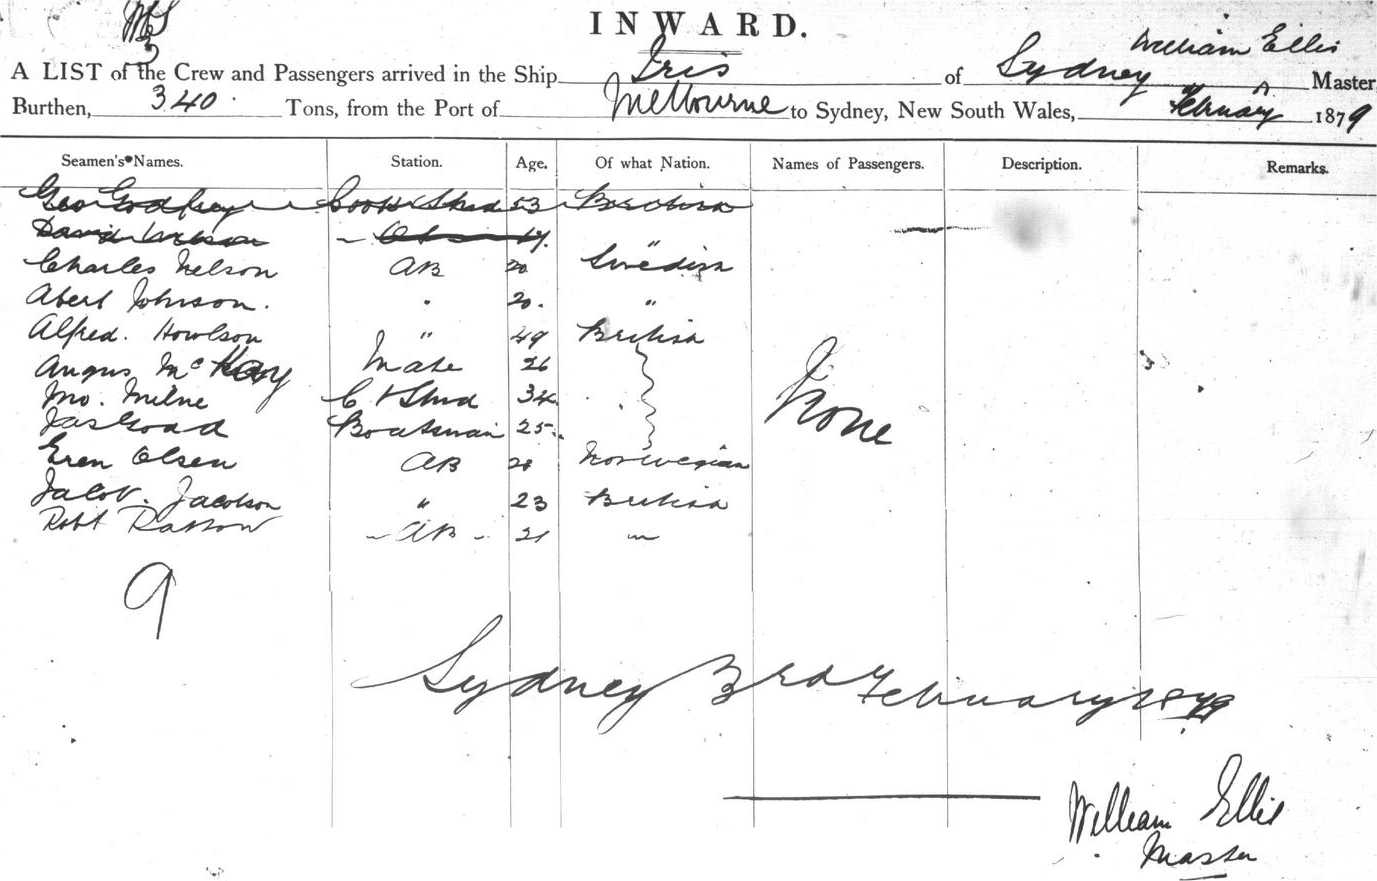 INWARD.
William Ellis
A LIST of the Crew and Passengers arrived in the Ship Iris of Sydney Master
Burthen, 340 Tons, from the Port of Melbourne to Sydney, New South Wales, February 1879
Seamen's Names. Station. Age. Of what Nation. Names of Passengers. Description. Remarks.
Geo Godfrey Cook & Stud 53 British
David 17. "
Charles Nelson AB 20 Swedish
Abert Johnson. " 20. "
Alfred. Howlson " 49 British
Angus McKay Mate 26
Jno. Milne C & Stud 34
None
Jas Goad Boatswain 25
Eren Olsen AB Norwegian
Jacob. Jacobson " 23 British
Robt AB 21 "
9
Sydney 3rd February 1879
William Ellis
Master